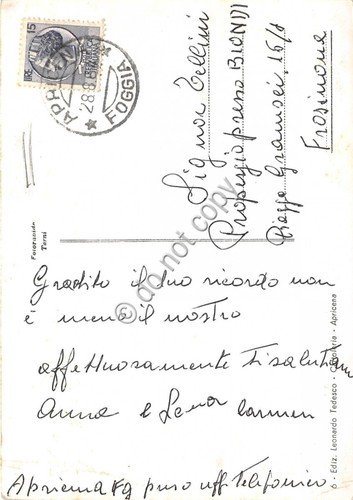 15
APRICENA
28.8.6
FOGGIA
Signor Tellini
presso BIONDI
Piazza Gramsci, 16/A
Frosinone
Fotorapida
Terni
Gradito il tuo ricordo non
è meno il nostro
affettuosamente ti salutiamo
Anna e Lena Carmen
Apricena Fg puro uff Telefonico
6 - Ediz. Leonardo Tedesco - Apricena
do not copy